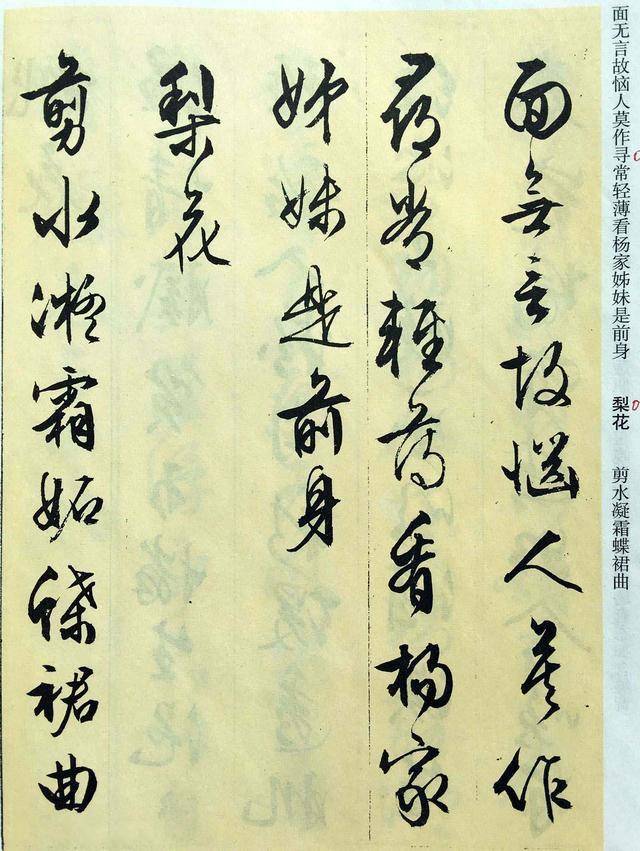 面无言故恼人莫作寻常轻薄看杨家姊妹是前身　梨花　剪水凝霜蝶裙曲
面無言故惱人莫作
尋常輕薄看楊家
姊妹是前身
梨花
剪水凝霜妬蝶裙曲